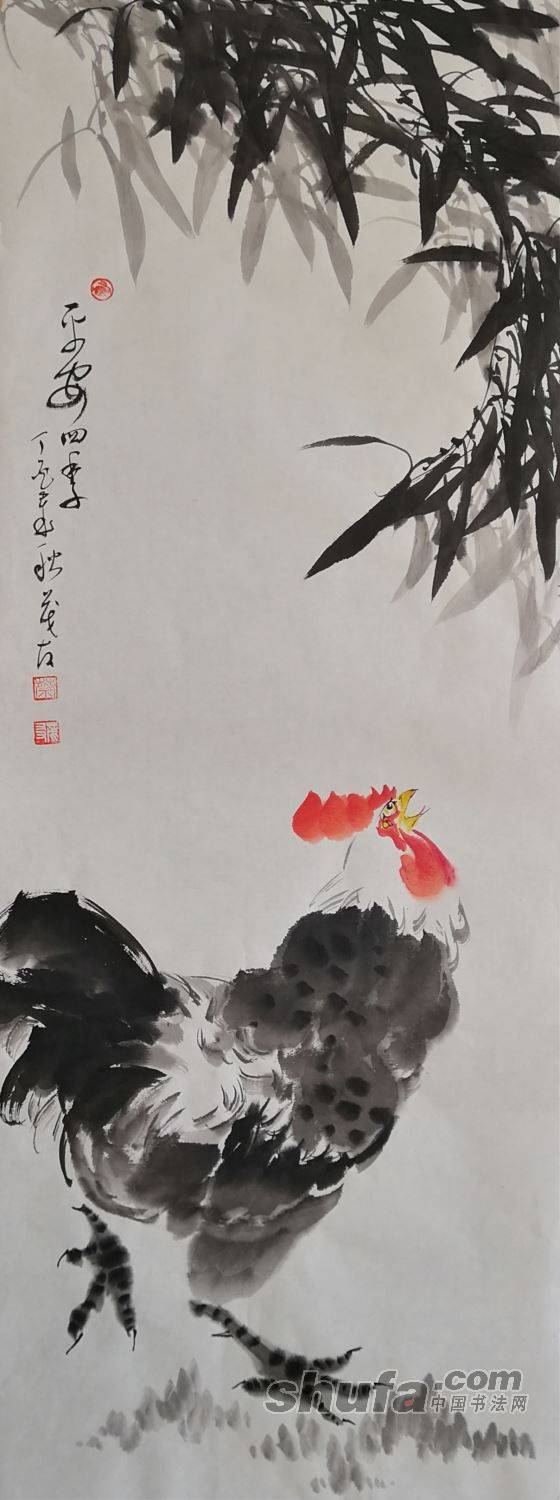 平安四季
丁亥年秋茂友
shufa.com
中国书法网